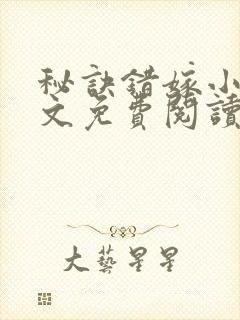 秘訣錯嫁小
文免費閱讀
大藝星星